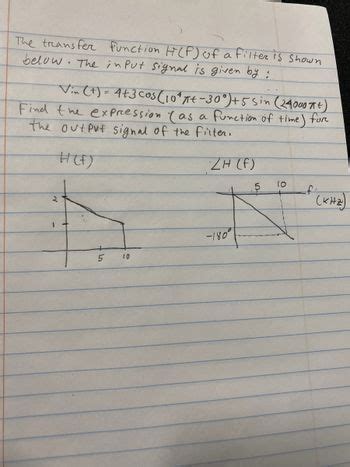 The transfer function H(F) of a filter is shown
below. The input signal is given by :
Vin (t) = 4+3 cos(10⁴πt-30°)+5 sin (24000πt)
Find the expression (as a function of time) for
the output signal of the filter.
H(f)
∠H (f)
2
1
5
10
5
10
f
(KHz)
-180°